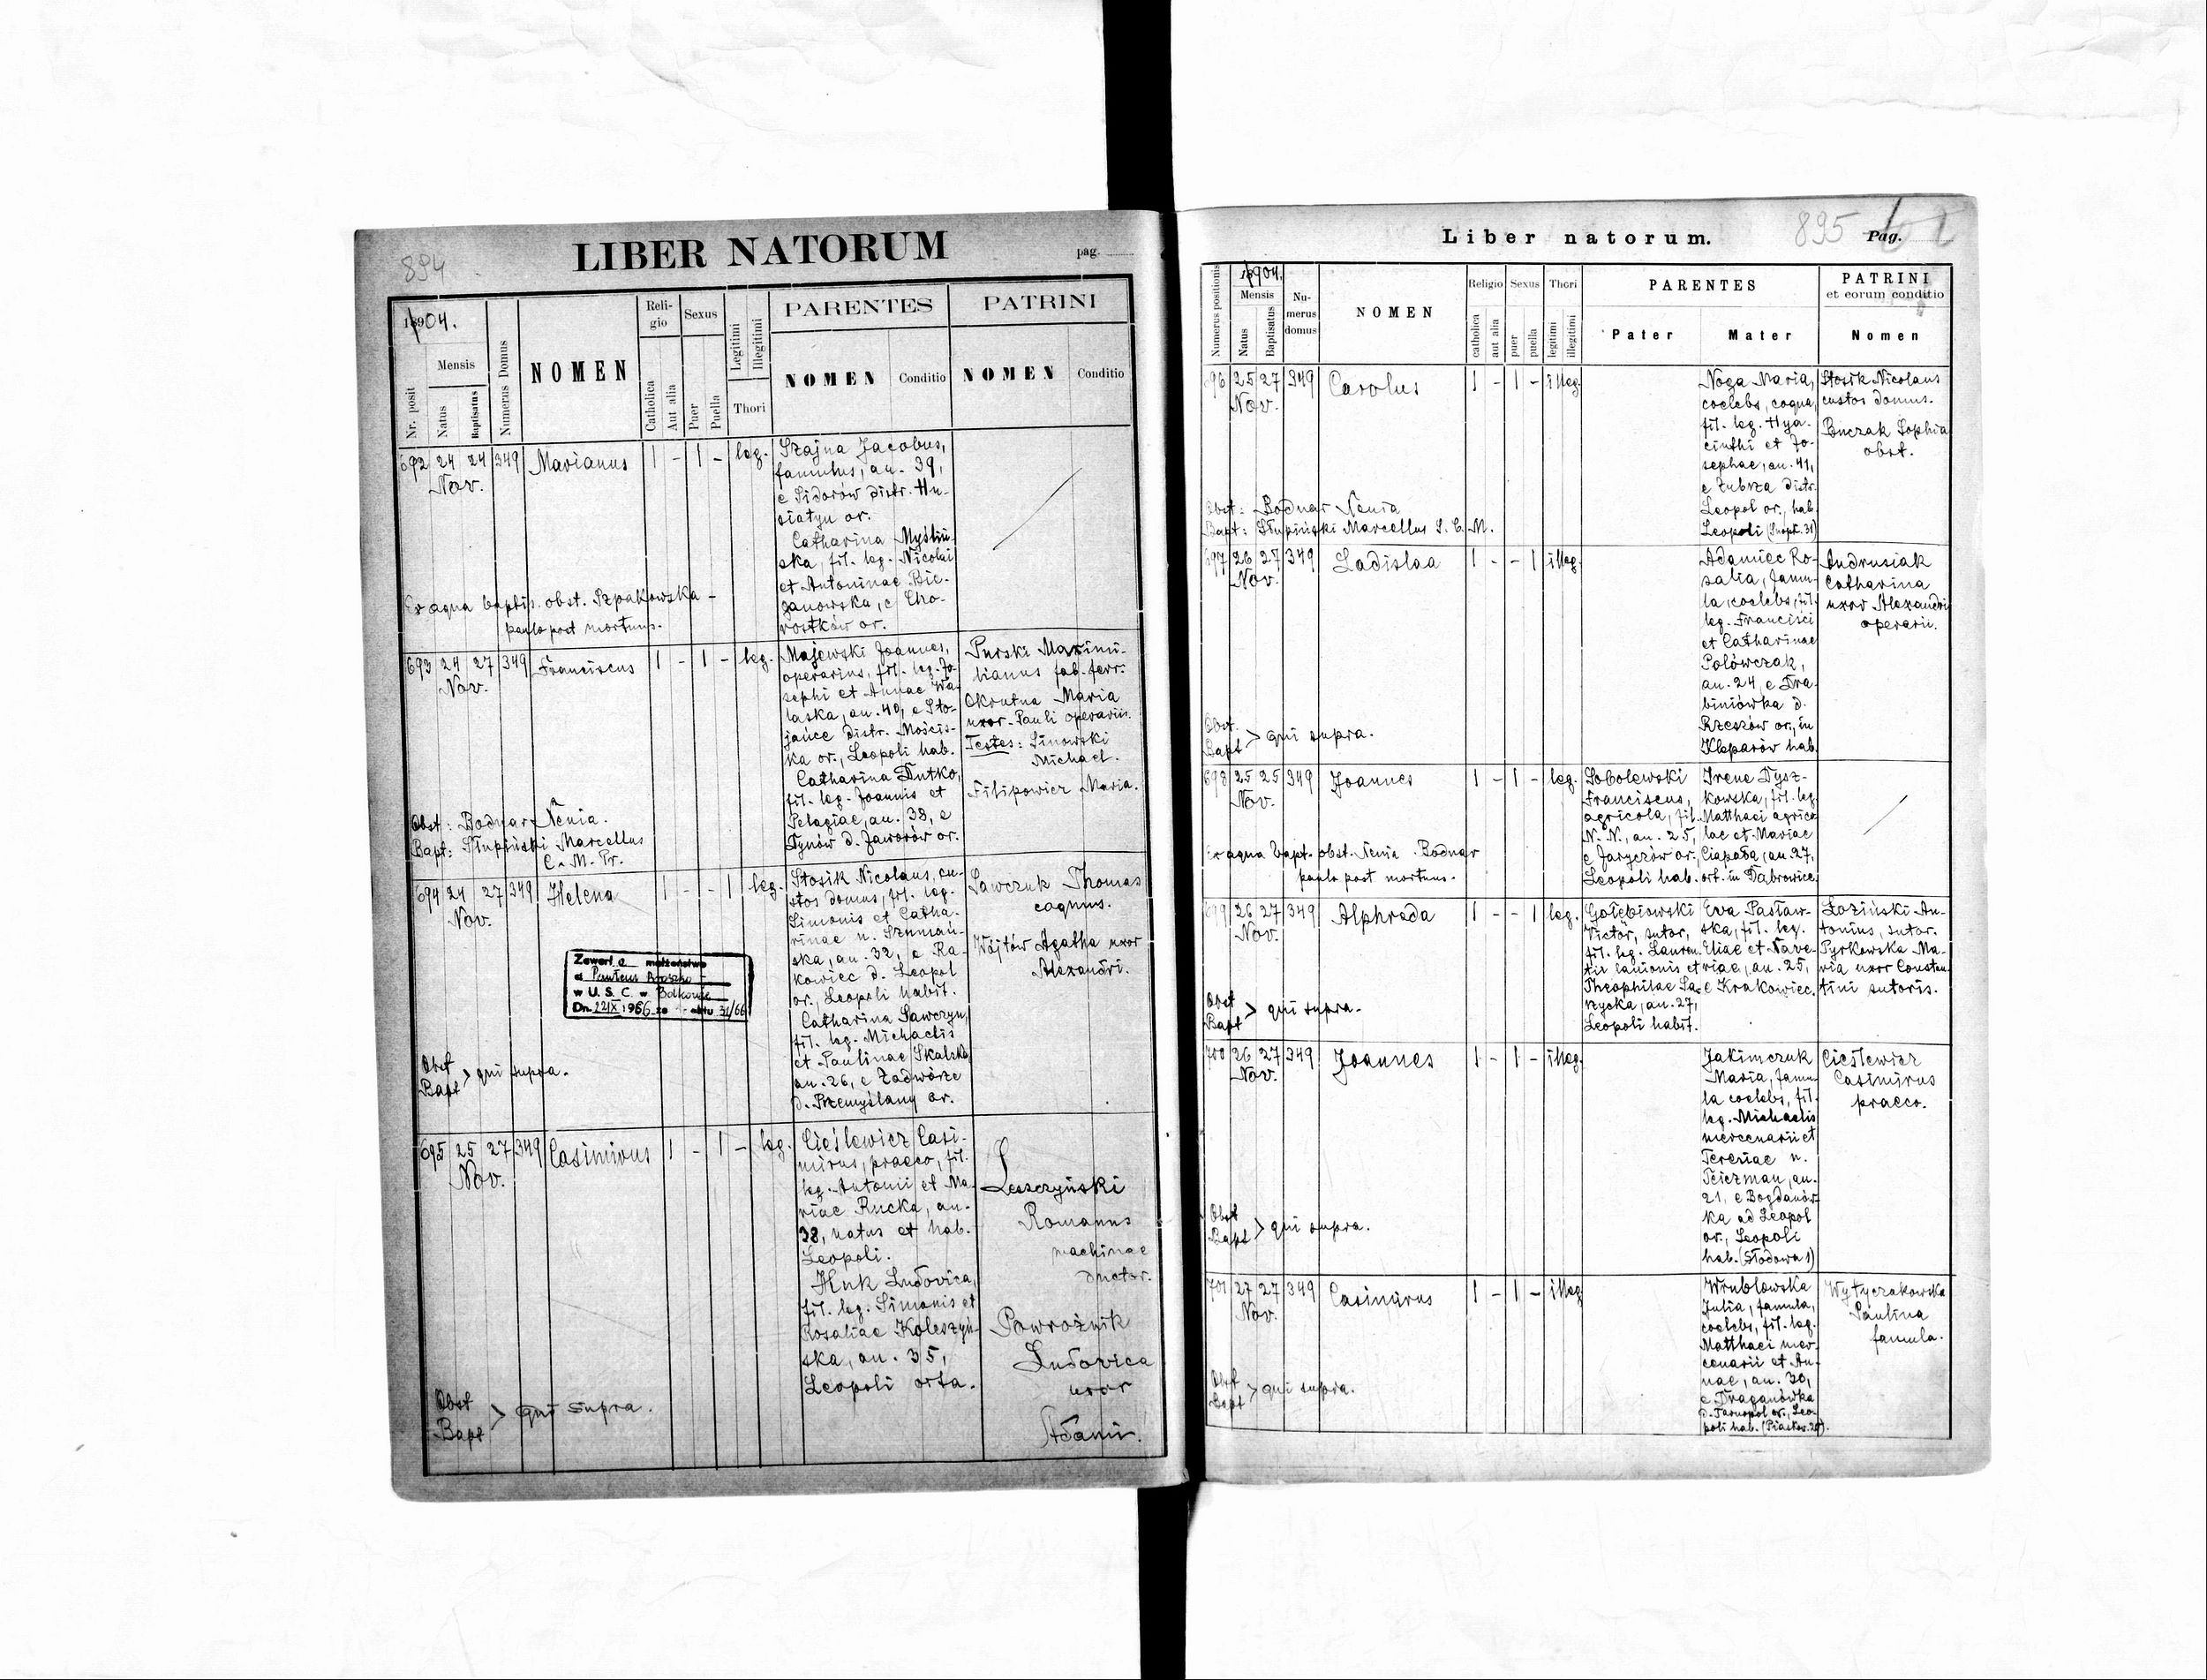 894
LIBER NATORUM
pag.
1904.
Nr. posit
Mensis
Natus
Baptisatus
Numerus Domus
NOMEN
Religio
Catholica
Aut alia
Sexus
Puer
Puella
Legitimi
Illegitimi
Thori
PARENTES
NOMEN
Conditio
PATRINI
NOMEN
Conditio
692 24 24 349 Marianus 1 - 1 - leg.
Nov.
Szajna Jacobus,
famulus, an. 39,
e Sidorów distr. Hu-
siatyn or.
Catharina Myśliń-
ska, fil. leg. Nicolai
et Antoninae Bie-
ganowska, e Cho-
rostków or.
Ex aqua baptis. obst. Szpakowska -
paulo post mortuus.
693 24 27 349 Franciscus 1 - 1 - leg.
Nov.
Majewski Joannes,
operarius, fil. leg. Jo-
sephi et Annae Wa-
laska, an. 40, e Sto-
jańce distr. Mościs-
ka or., Leopoli hab.
Catharina Dutko,
fil. leg. Joannis et
Pelagiae, an. 38, e
Tynów d. Jaworów or.
Purski Maximi-
lianus fab. ferr.
Okrutna Maria
uxor Pauli operarii.
Testes: Sinowski
Michael.
Filipowicz Maria.
Obst: Bodnar Xenia.
Bapt: Słupiński Marcellus
C. M. Pr.
694 24 27 349 Helena 1 - - 1 leg.
Nov.
Stosik Nicolaus, cu-
stos domus, fil. leg.
Simonis et Catha-
rinae n. Szumań-
ska, an. 32, e Ra-
kowiec d. Leopol
or., Leopoli habit.
Catharina Sawczyn,
fil. leg. Michaelis
et Paulinae Skalska
an. 26, e Zadwórze
d. Przemyślany or.
Sawczuk Thomas
coquus.
Wójtów Agatha uxor
Alexandri.
Zawarł a małżeństwo
w U. S. C. w Bolkowie
Obst
Bapt > qui supra.
695 25 27 349 Casimirus 1 - 1 - leg.
Nov.
Cieślewicz Casi-
mirus, praeco, fil.
leg. Antonii et Ma-
riae Rucka, an.
38, natus et hab.
Leopoli.
Huk Ludovica,
fil. leg. Simonis et
Rosaliae Koleszyń-
ska, an. 35,
Leopoli orta.
Leszczyński
Romanus
machinae
ductor.
Powroźnik
Ludovica
uxor
Adami.
Obst
Bapt > qui supra.
Liber natorum.
895
Pag.
1904.
Numerus positionis
Mensis
Natus
Baptisatus
Numerus domus
NOMEN
Religio
catholica
aut alia
Sexus
puer
puella
Thori
legitimi
illegitimi
PARENTES
Pater
Mater
PATRINI
et eorum conditio
Nomen
696 25 27 349 Carolus 1 - 1 - illeg.
Nov.
Noga Maria,
coelebs, coqua,
fil. leg. Hya-
cinthi et Jo-
sephae, an. 41,
e Zubrza distr.
Leopol or., hab.
Leopoli
Stosik Nicolaus
custos domus.
Buczak Sophia
obst.
Obst: Bodnar Xenia
Bapt: Słupiński Marcellus S. C. M.
697 26 27 349 Ladislaa 1 - - 1 illeg.
Nov.
Adamiec Ro-
salia, famu-
la, coelebs, fil.
leg. Francisci
et Catharinae
Polówczak,
an. 24, e Dra-
biniówka d.
Rzeszów or., in
Kleparów hab.
Andrusiak
Catharina
uxor Alexandri
operarii.
Obst.
Bapt > qui supra.
698 25 25 349 Joannes 1 - 1 - leg.
Nov.
Sobolewski
Franciscus,
agricola, fil.
N. N., an. 25,
e Jaryczów or.,
Leopoli hab.
Irene Dysz-
kowska, fil. leg.
Matthaei agrico-
lae et Mariae
Ciapała, an. 27,
ort. in Dąbrowice.
Ex aqua bapt. obst. Xenia Bodnar
paulo post mortuus.
699 26 27 349 Alphreda 1 - - 1 leg.
Nov.
Gołębiowski
Victor, sutor,
fil. leg. Lauren-
tii lanionis et
Theophilae Sa-
rzycka, an. 27,
Leopoli habit.
Eva Pasław-
ska, fil. leg.
Eliae et Xave-
riae, an. 25,
e Krakowiec.
Łoziński An-
tonius, sutor.
Pyrkowska Ma-
ria uxor Constan-
tini sutoris.
Obst
Bapt > qui supra.
700 26 27 349 Joannes 1 - 1 - illeg.
Nov.
Jakimczuk
Maria, famu-
la coelebs, fil.
leg. Michaelis
mercenarii et
Teresiae n.
Feiczman, an.
21, e Bogdanów-
ka ad Leopol
or., Leopoli
hab. (Słodowa 1)
Cieślewicz
Casimirus
praeco.
Obst
Bapt > qui supra.
701 27 27 349 Casimirus 1 - 1 - illeg.
Nov.
Wrublowska
Julia, famula,
coelebs, fil. leg.
Matthaei mer-
cenarii et An-
nae, an. 30,
e Draganówka
d. Tarnopol or., Leo-
poli hab.
Wytyczakowska
Paulina
famula.
Obst
Bapt > qui supra.